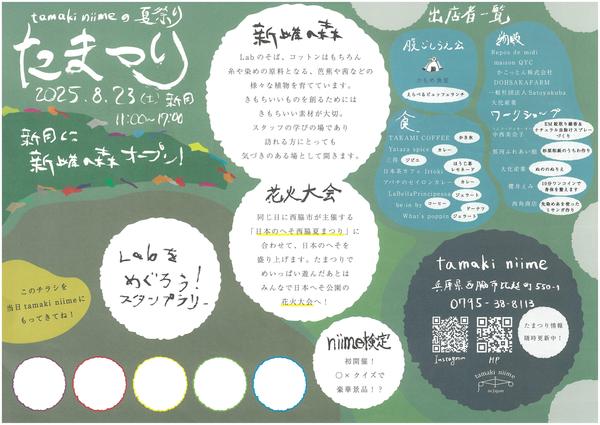 tamaki niimeの夏祭り
たまつり
2025.8.23(土)
11:00〜17:00
新雌の森
オープン!
Labのそば、コットンはもちろん
糸や染めの原料となる、芭蕉や茜などの
様々な植物を育てています。
きもちいいものを創るためには
きもちいい素材が大切。
スタッフの学びの場であり
訪れる方にとっても
気づきのある場として開きます。
花火大会
同じ日に西脇市が主催する
「日本のへそ西脇夏まつり」に
合わせて、日本のへそを
盛り上げます。たまつりで
めいっぱい遊んだあとは
みんなで日本へそ公園の
花火大会へ!
Labを
めぐろう!
スタンプラリー
このチラシを
当日tamaki niimeに
もってきてね!
niime検定
初開催!
〇×クイズで
豪華景品!?
出店者一覧
腹ごしらえ会
えらべるビュッフェランチ
食
TAKAMI COFFEE
かき氷
Yatara spice
カレー
三得
ジビエ
日本茶カフェ Irtoki
ほうじ茶
レモネード
アバナのセイロンカレー
カレー
LaBellaPrincipessa
ジェラート
be in by
コーヒー
ドーナツ
What's poppin
ジェラート
物販
Repos de midi
maison QYC
かこっとん株式会社
DOHSAKAFARM
一般社団法人Satoyakuba
大化産業
ワークショップ
中西美奈子
EM絞取り線香&
ナチュラル虫除けスプレー
づくり
那河ふれあい館
杉原和紙のうちわ作り
大化産業
ぬのぬりえ
櫻井えみ
10分ワンコインで
身体を整えます
西角商店
先染め糸を使った
ミサンガ作り
tamaki niime
兵庫県西脇市比延町550-1
0795-38-8113
Instagram
HP
たまつり情報
随時更新中!
tamaki niime